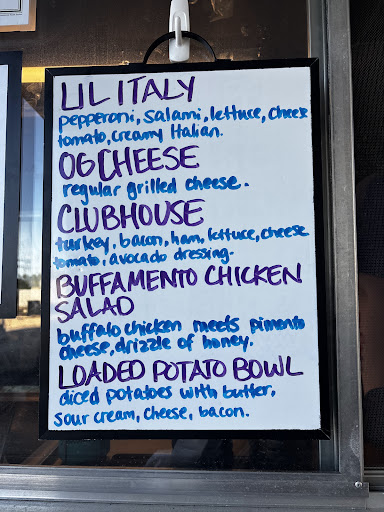 LIL ITALY
pepperoni, salami, lettuce, cheese
tomato, creamy Italian.
OG CHEESE
regular grilled cheese.
CLUBHOUSE
turkey, bacon, ham, lettuce, cheese
tomato, avocado dressing.
BUFFAMENTO CHICKEN
SALAD
buffalo chicken meets pimento
cheese, drizzle of honey.
LOADED POTATO BOWL
diced potatoes with butter,
sour cream, cheese, bacon.